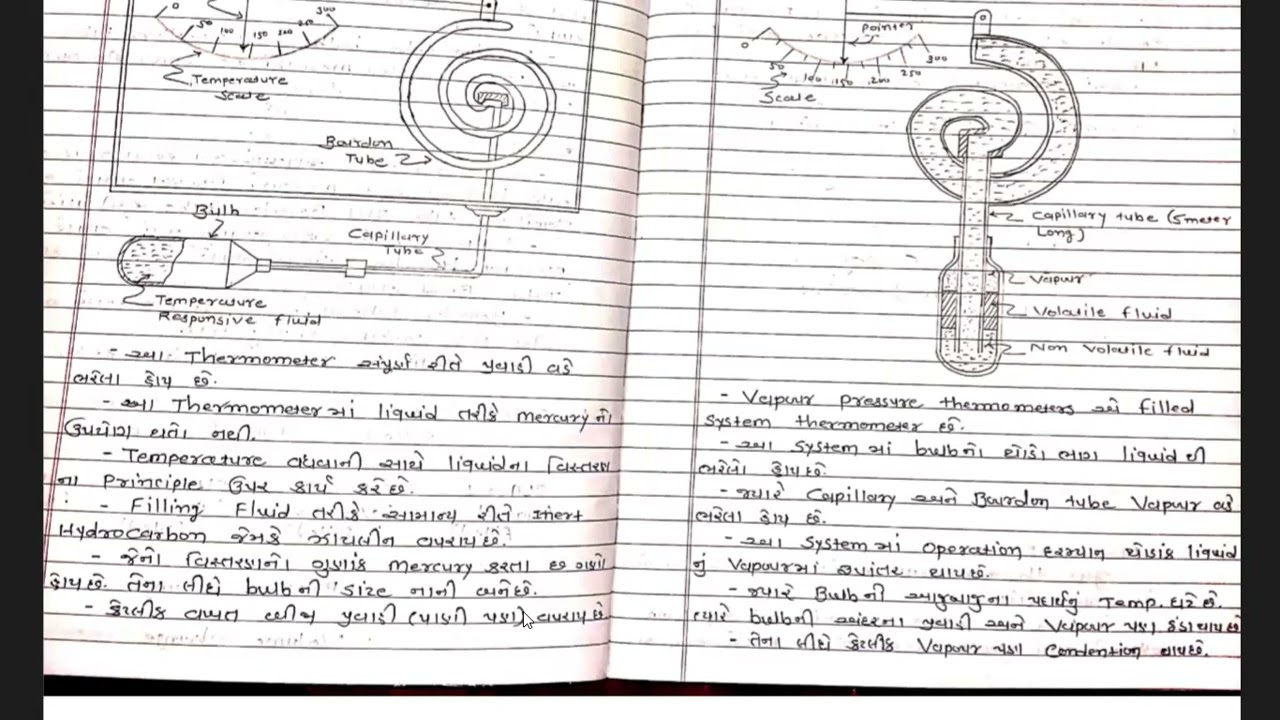 0
50
100
150
200
250
300
Temperature
Scale
Bourdon
Tube
Bulb
Capillary
Tube
Temperature
Responsive fluid
- આ Thermometer સંપૂર્ણ રીતે પ્રવાહી વડે
ભરેલા હોય છે.
- આ Thermometer માં liquid તરીકે mercury નો
ઉપયોગ થતો નથી.
- Temperature વધવાની સાથે liquid ના વિસ્તરણ
ના Principle ઉપર કાર્ય કરે છે.
- Filling Fluid તરીકે સામાન્ય રીતે Inert
Hydrocarbon જેમકે ઝાયલીન વપરાય છે.
- જેનો વિસ્તરણનો ગુણાંક mercury કરતા છ ગણો
હોય છે. તેના લીધે bulb ની size નાની બને છે.
- કેટલીક વખત બીજા પ્રવાહી (પાણી પણ) વપરાય છે
Pointer
0
50
100
150
200
250
300
Scale
Capillary tube (5 meter
Long)
Vapour
Volatile fluid
Non Volatile fluid
- Vapour pressure thermometers એ filled
System thermometer છે.
- આ System માં bulb નો થોડો ભાગ liquid થી
ભરેલો હોય છે.
- જ્યારે Capillary અને Bourdon tube Vapour વડે
ભરેલા હોય છે.
- આ System માં operation દરમ્યાન થોડાક liquid
નું Vapour માં રૂપાંતર થાય છે.
- જ્યારે Bulb ની આજુબાજુના પદાર્થનું Temp. ઘટે છે.
ત્યારે bulb ની અંદરના પ્રવાહી અને Vapour પણ ઠંડા થાય છે
- તેના લીધે કેટલીક Vapour પણ Condention થાય છે.